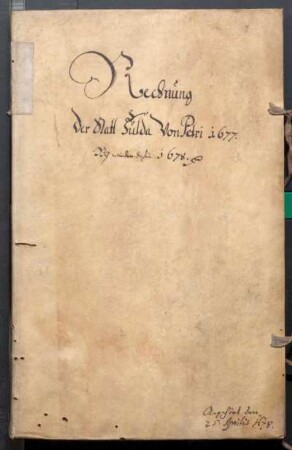 Rechnung
Der Statt Fulda Von Petri 1677.
Biß wieder dahin 1678.
Abgehört den
25. Aprilis 1678.